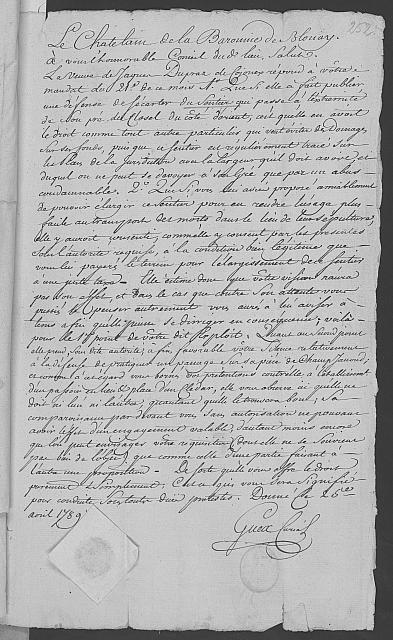 Le Chatelain de la Baronnie de Blonay,
à vous l'honnorable Conseil du dt lieu, Salut.
La Veuve de Jaques Dupraz de Cojonex répond à vôtre
mandat du 21e de ce mois 1° Que si elle a fait publier
une défense de s'écarter du Sentier qui passe à l'extremité
de son pré de Closel du côté d'orient, c'est qu'elle en avoit
le droit comme tout autre particulier qui veut éviter du Domage
sur ses fonds, puis que ce sentier est regulierement tracé sur
les Plans de la jurisdiction avec la largeur qu'il doit avoir, et
duquel on ne peut se devoyer à son gré que par un abus
condamnable. 2° Que si vous lui aviés proposé amiablement
de pouvoir élargir ce sentier pour en rendre l'usage plus
facile au transport des morts dans le lieu de leur sépulture,
elle y auroit consenti, comme elle y consent par les présentes
sous l'autorité requise, à la condition bien légitime que
vous lui payerés le terrein pour l'élargissement de ce sentier
à une juste taxe — Elle estime donc que votre vision n'aura
pas son effet, et dans le cas que contre son attente vous
pensiés penser autrement vous aurés à lui aviser à
tems afin qu'elle puisse se diriger en conséquence; voilà
pour le 1er point de votre dit Exploit. Quant au second pour
elle prend, son dite autorité, à fin, favorable vôtre silence relativement
à la défense de pratiquer un passage sur sa pièce de
et comme à cet égard vous formés des prétentions contr'elle à l'établissement
d'un passoir en lieu et place d'un Cledar, elle vous observe ni qu'elle ne
doit ni l'un ni l'autre, quant qu'elle le trouvera bon; Sa
comparoissance par devant vous sans autorisation ne pouvant
avoir l'effet d'un engagement valable, d'autant moins encore
que l'on peut envisager vôtre requisition (dont elle ne se souvient
pas bien de l'objet) que comme celle d'une partie faisant à
l'autre une proposition — De sorte qu'elle vous offre le droit
purement & simplement; Ce qui vous sera signifié
pour conduite, sous toute due protestes. Donné ce 25e
avril 1789.